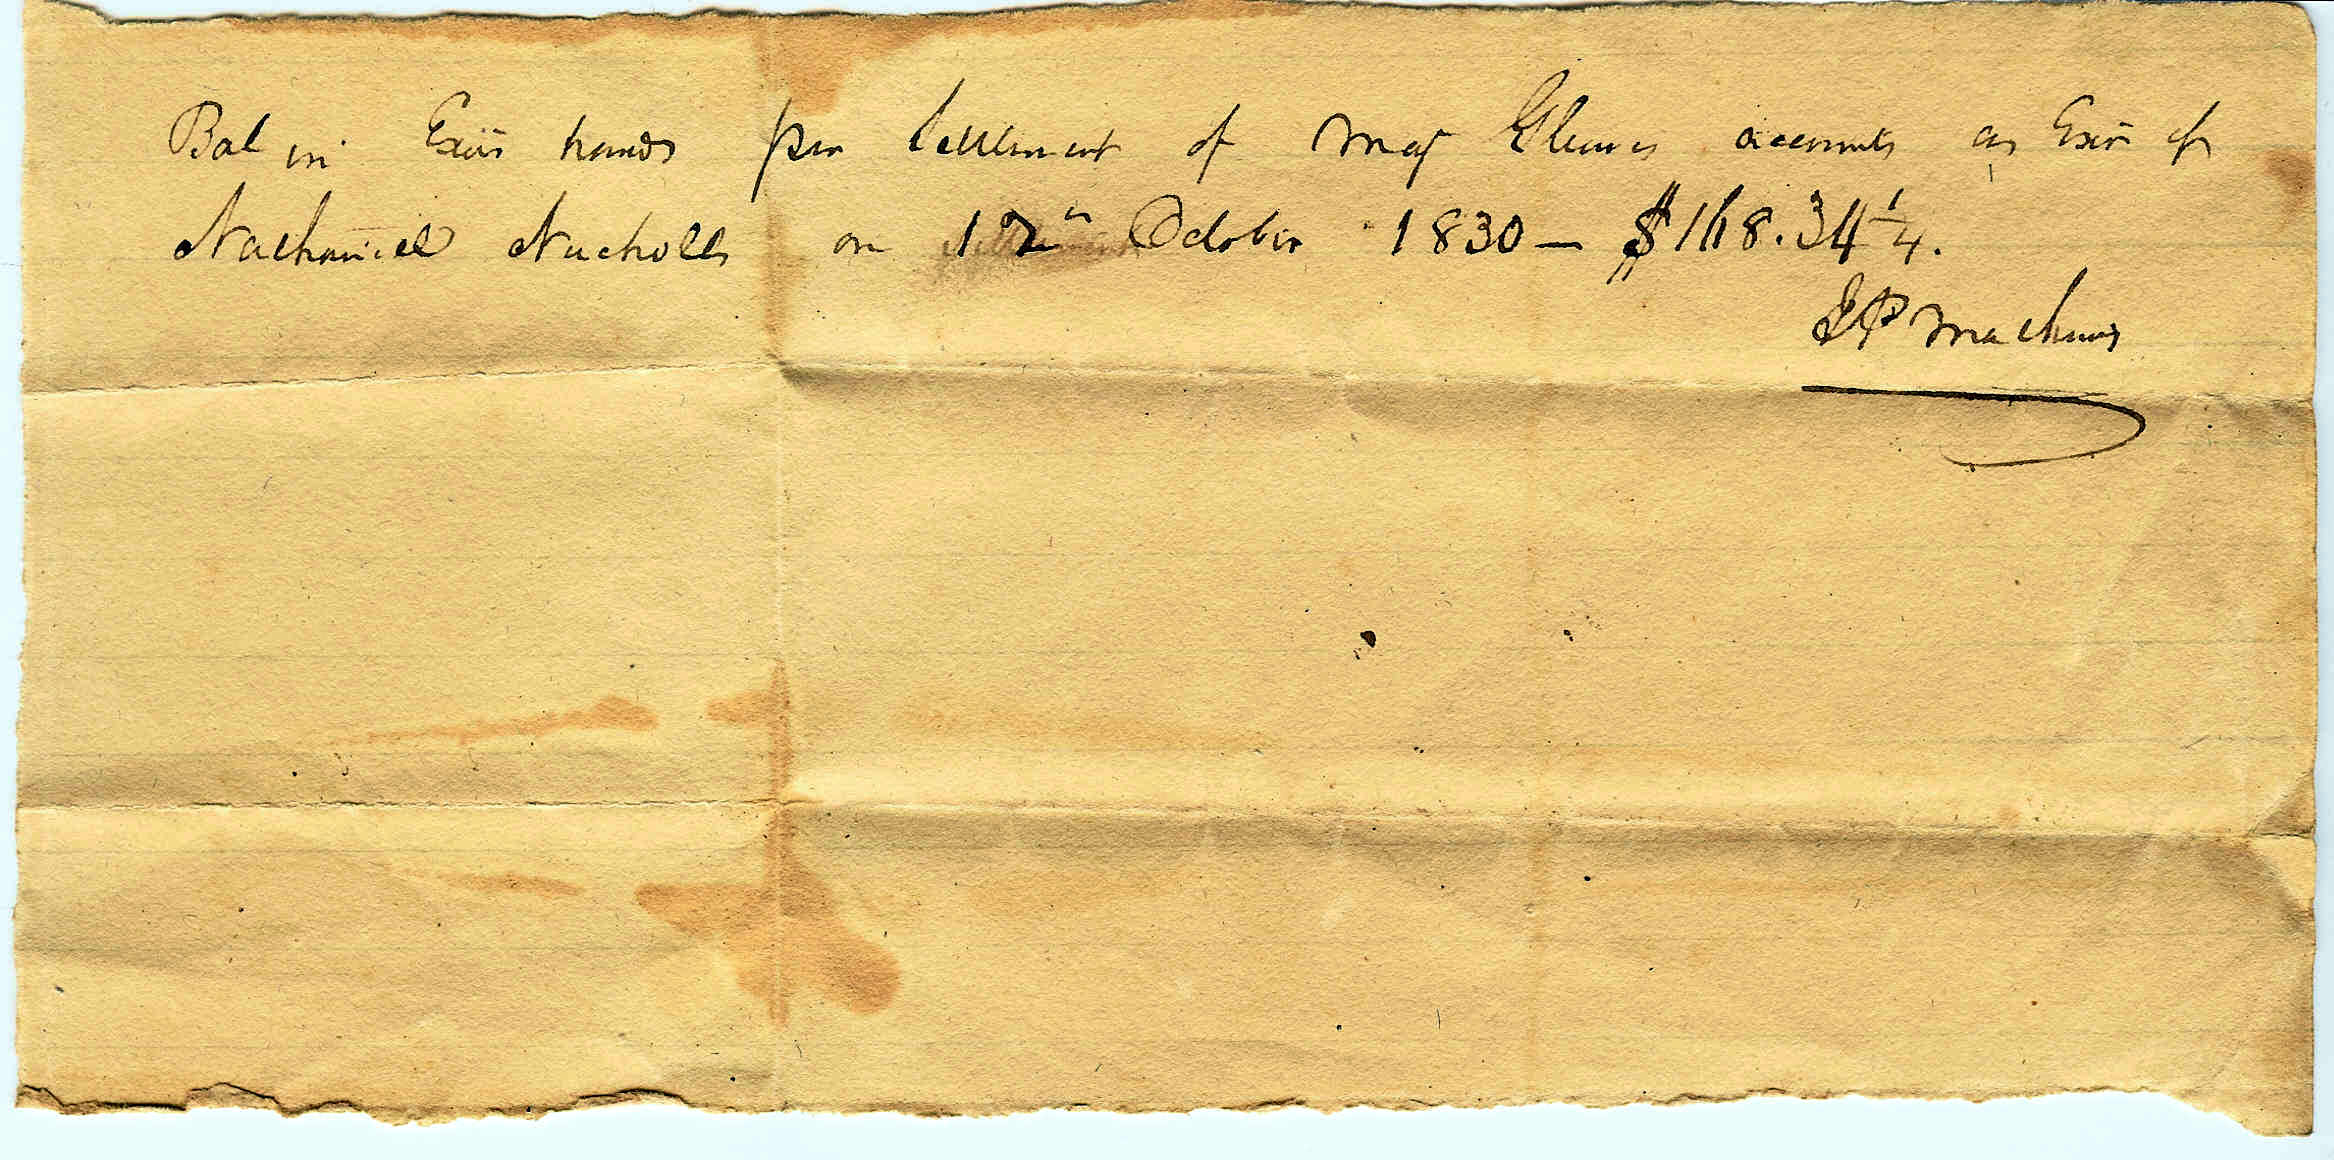 Bal in Exōrs hands per Settlement of Maj Gleaves accounts as Exōr of
Nathaniel Nuckolls on 12th October 1830 — $168.34 1/4.
J P Mathews